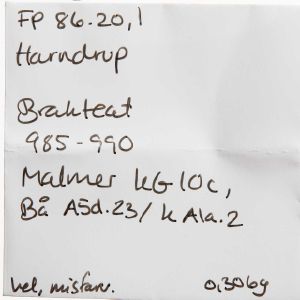 FP 86.20,1
Harndrup
Brakteat
985-990
Malmer kG10c,
Bå A5d.23/ k A1a.2
vel, misfarv.
0,306g